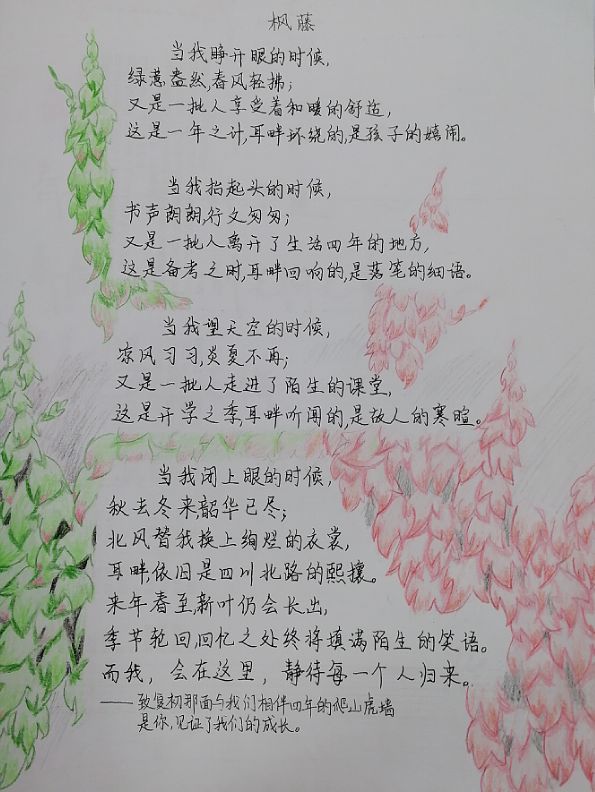 枫藤
当我睁开眼的时候，
绿意盎然，春风轻拂；
又是一批人享受着和暖的舒适，
这是一年之计，耳畔环绕的，是孩子的嬉闹。
当我抬起头的时候，
书声朗朗，行文匆匆；
又是一批人离开了生活四年的地方，
这是备考之时，耳畔回响的，是落笔的细语。
当我望天空的时候，
凉风习习，炎夏不再；
又是一批人走进了陌生的课堂，
这是开学之季，耳畔听闻的，是故人的寒暄。
当我闭上眼的时候，
秋去冬来韶华已尽；
北风替我换上绚烂的衣裳，
耳畔，依旧是四川北路的熙攘。
来年春至，新叶仍会长出，
季节轮回，回忆之处终将填满陌生的笑语。
而我，会在这里，静待每一个人归来。
——致复初那面与我们相伴四年的爬山虎墙
是你，见证了我们的成长。